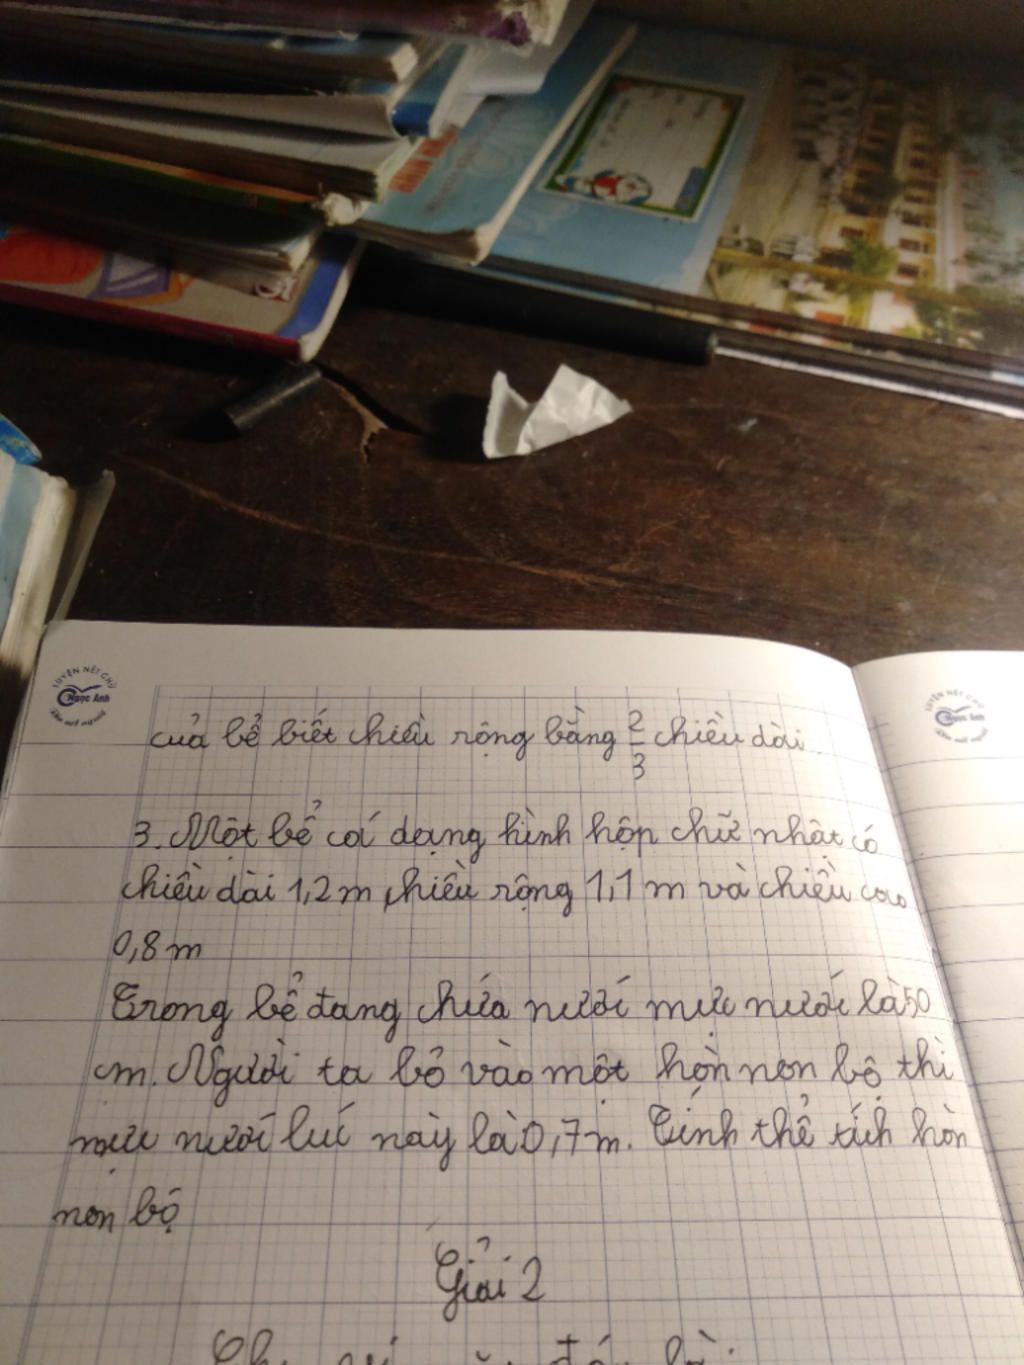 LUYỆN NÉT CHỮ
Ngọc Ánh
LUYỆN NÉT CHỮ
Ngọc Ánh
của bể biết chiều rộng bằng 2/3 chiều dài
3. Một bể cá dạng hình hộp chữ nhật có
chiều dài 1,2 m, chiều rộng 1,1 m và chiều cao
0,8 m
Trong bể đang chứa nước mực nước là 50
cm. Người ta bỏ vào một hòn non bộ thì
mực nước lúc này là 0,7 m. Tính thể tích hòn
non bộ
Giải 2